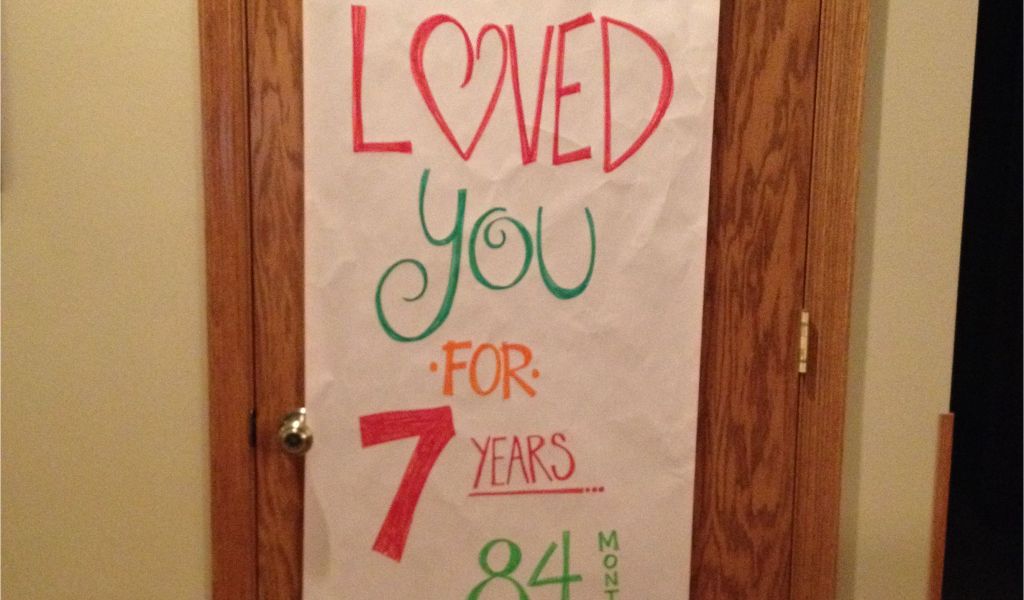 LOVED
YOU
·FOR·
7 YEARS...
84 MONT